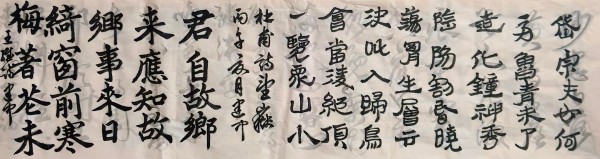 岱宗夫如何
齊魯青未了
造化鐘神秀
陰陽割昏曉
蕩胷生層云
決眥入歸鳥
會當淩絕頂
一覽衆山小
杜甫詩望嶽
丙午夏月建中
君自故鄉
来應知故
鄉事来日
綺窗前寒
梅著花未
王維詩建中